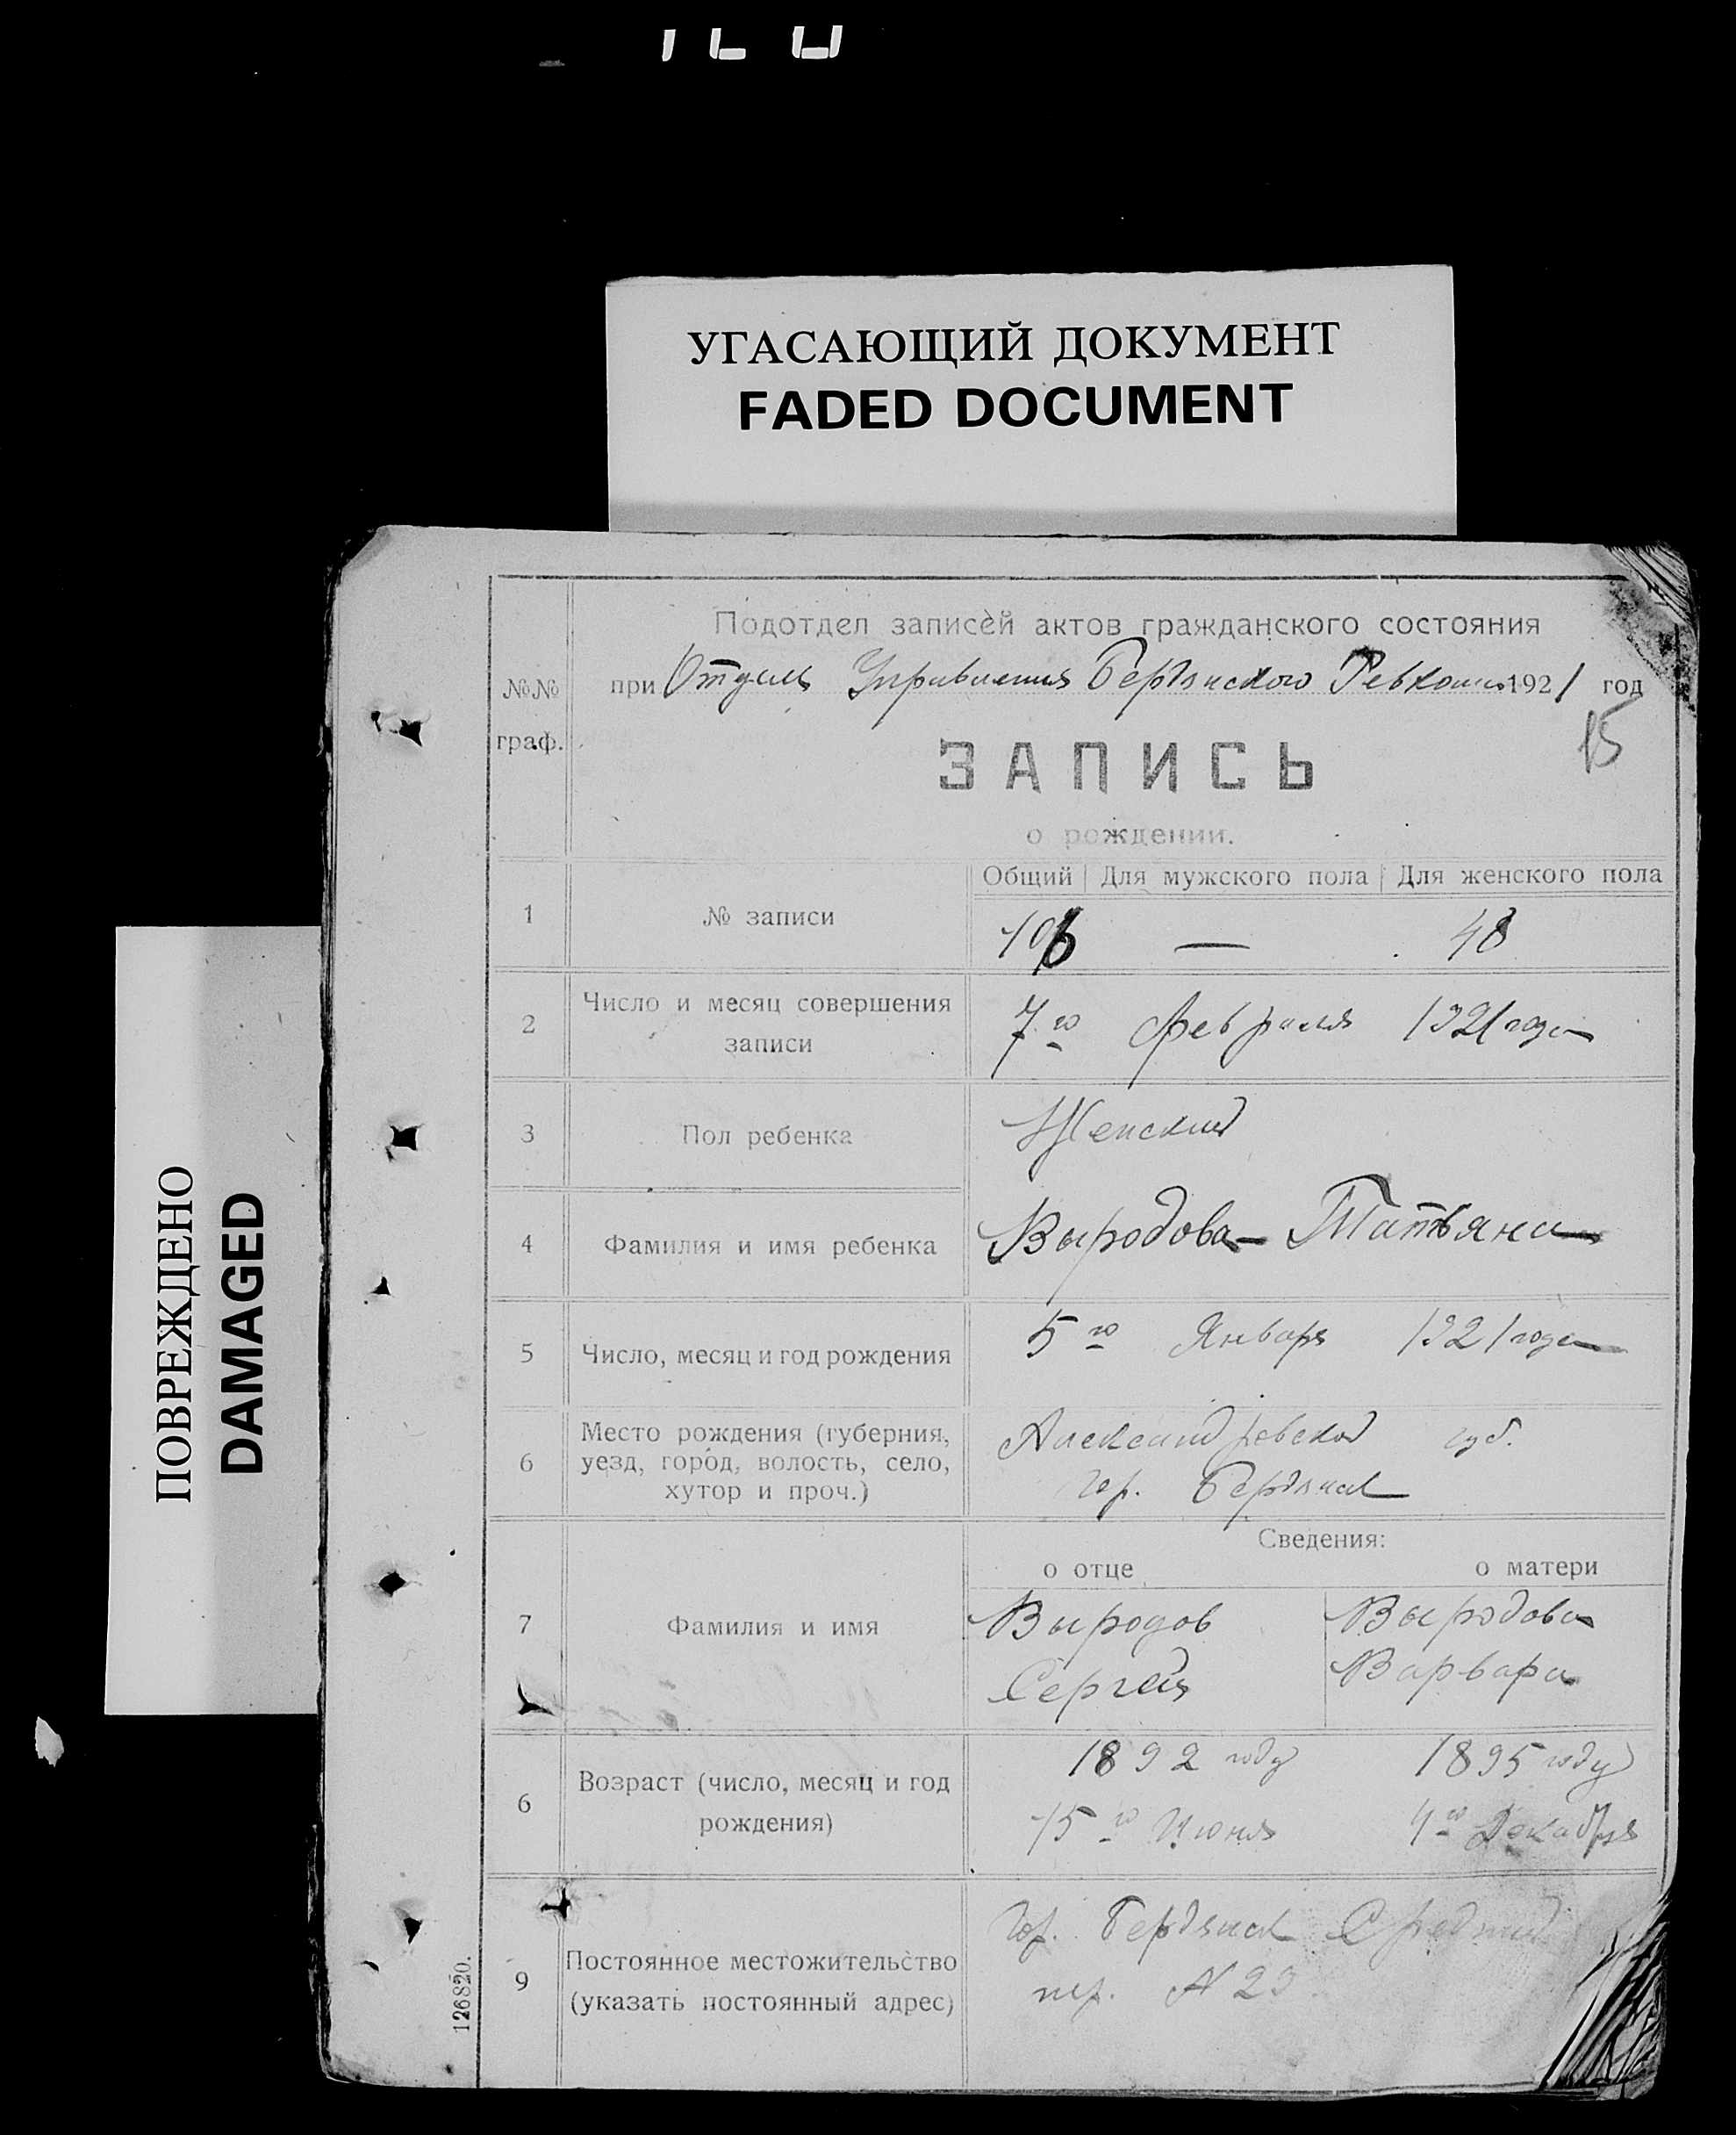 УГАСАЮЩИЙ ДОКУМЕНТ
FADED DOCUMENT
ПОВРЕЖДЕНО
DAMAGED
Подотдел записей актов гражданского состояния
№№ граф.
при Отделе Управления Бердянского Ревкома 1921 год
15
ЗАПИСЬ
о рождении.
Общий Для мужского пола Для женского пола
1 № записи 106 — 48
2 Число и месяц совершения записи 7го Февраля 1921 года
3 Пол ребенка Женский
4 Фамилия и имя ребенка Выродова Татьяна
5 Число, месяц и год рождения 5го Января 1921 года
6 Место рождения (губерния, уезд, город, волость, село, хутор и проч.)
Александровской губ.
гор. Бердянск
Сведения:
о отце о матери
7 Фамилия и имя
Выродов Выродова
Сергей Варвара
6 Возраст (число, месяц и год рождения)
1892 году 1895 году
15го Июня 4го Декабря
9 Постоянное местожительство (указать постоянный адрес)
гор. Бердянск Средний
пер. № 29
126820.